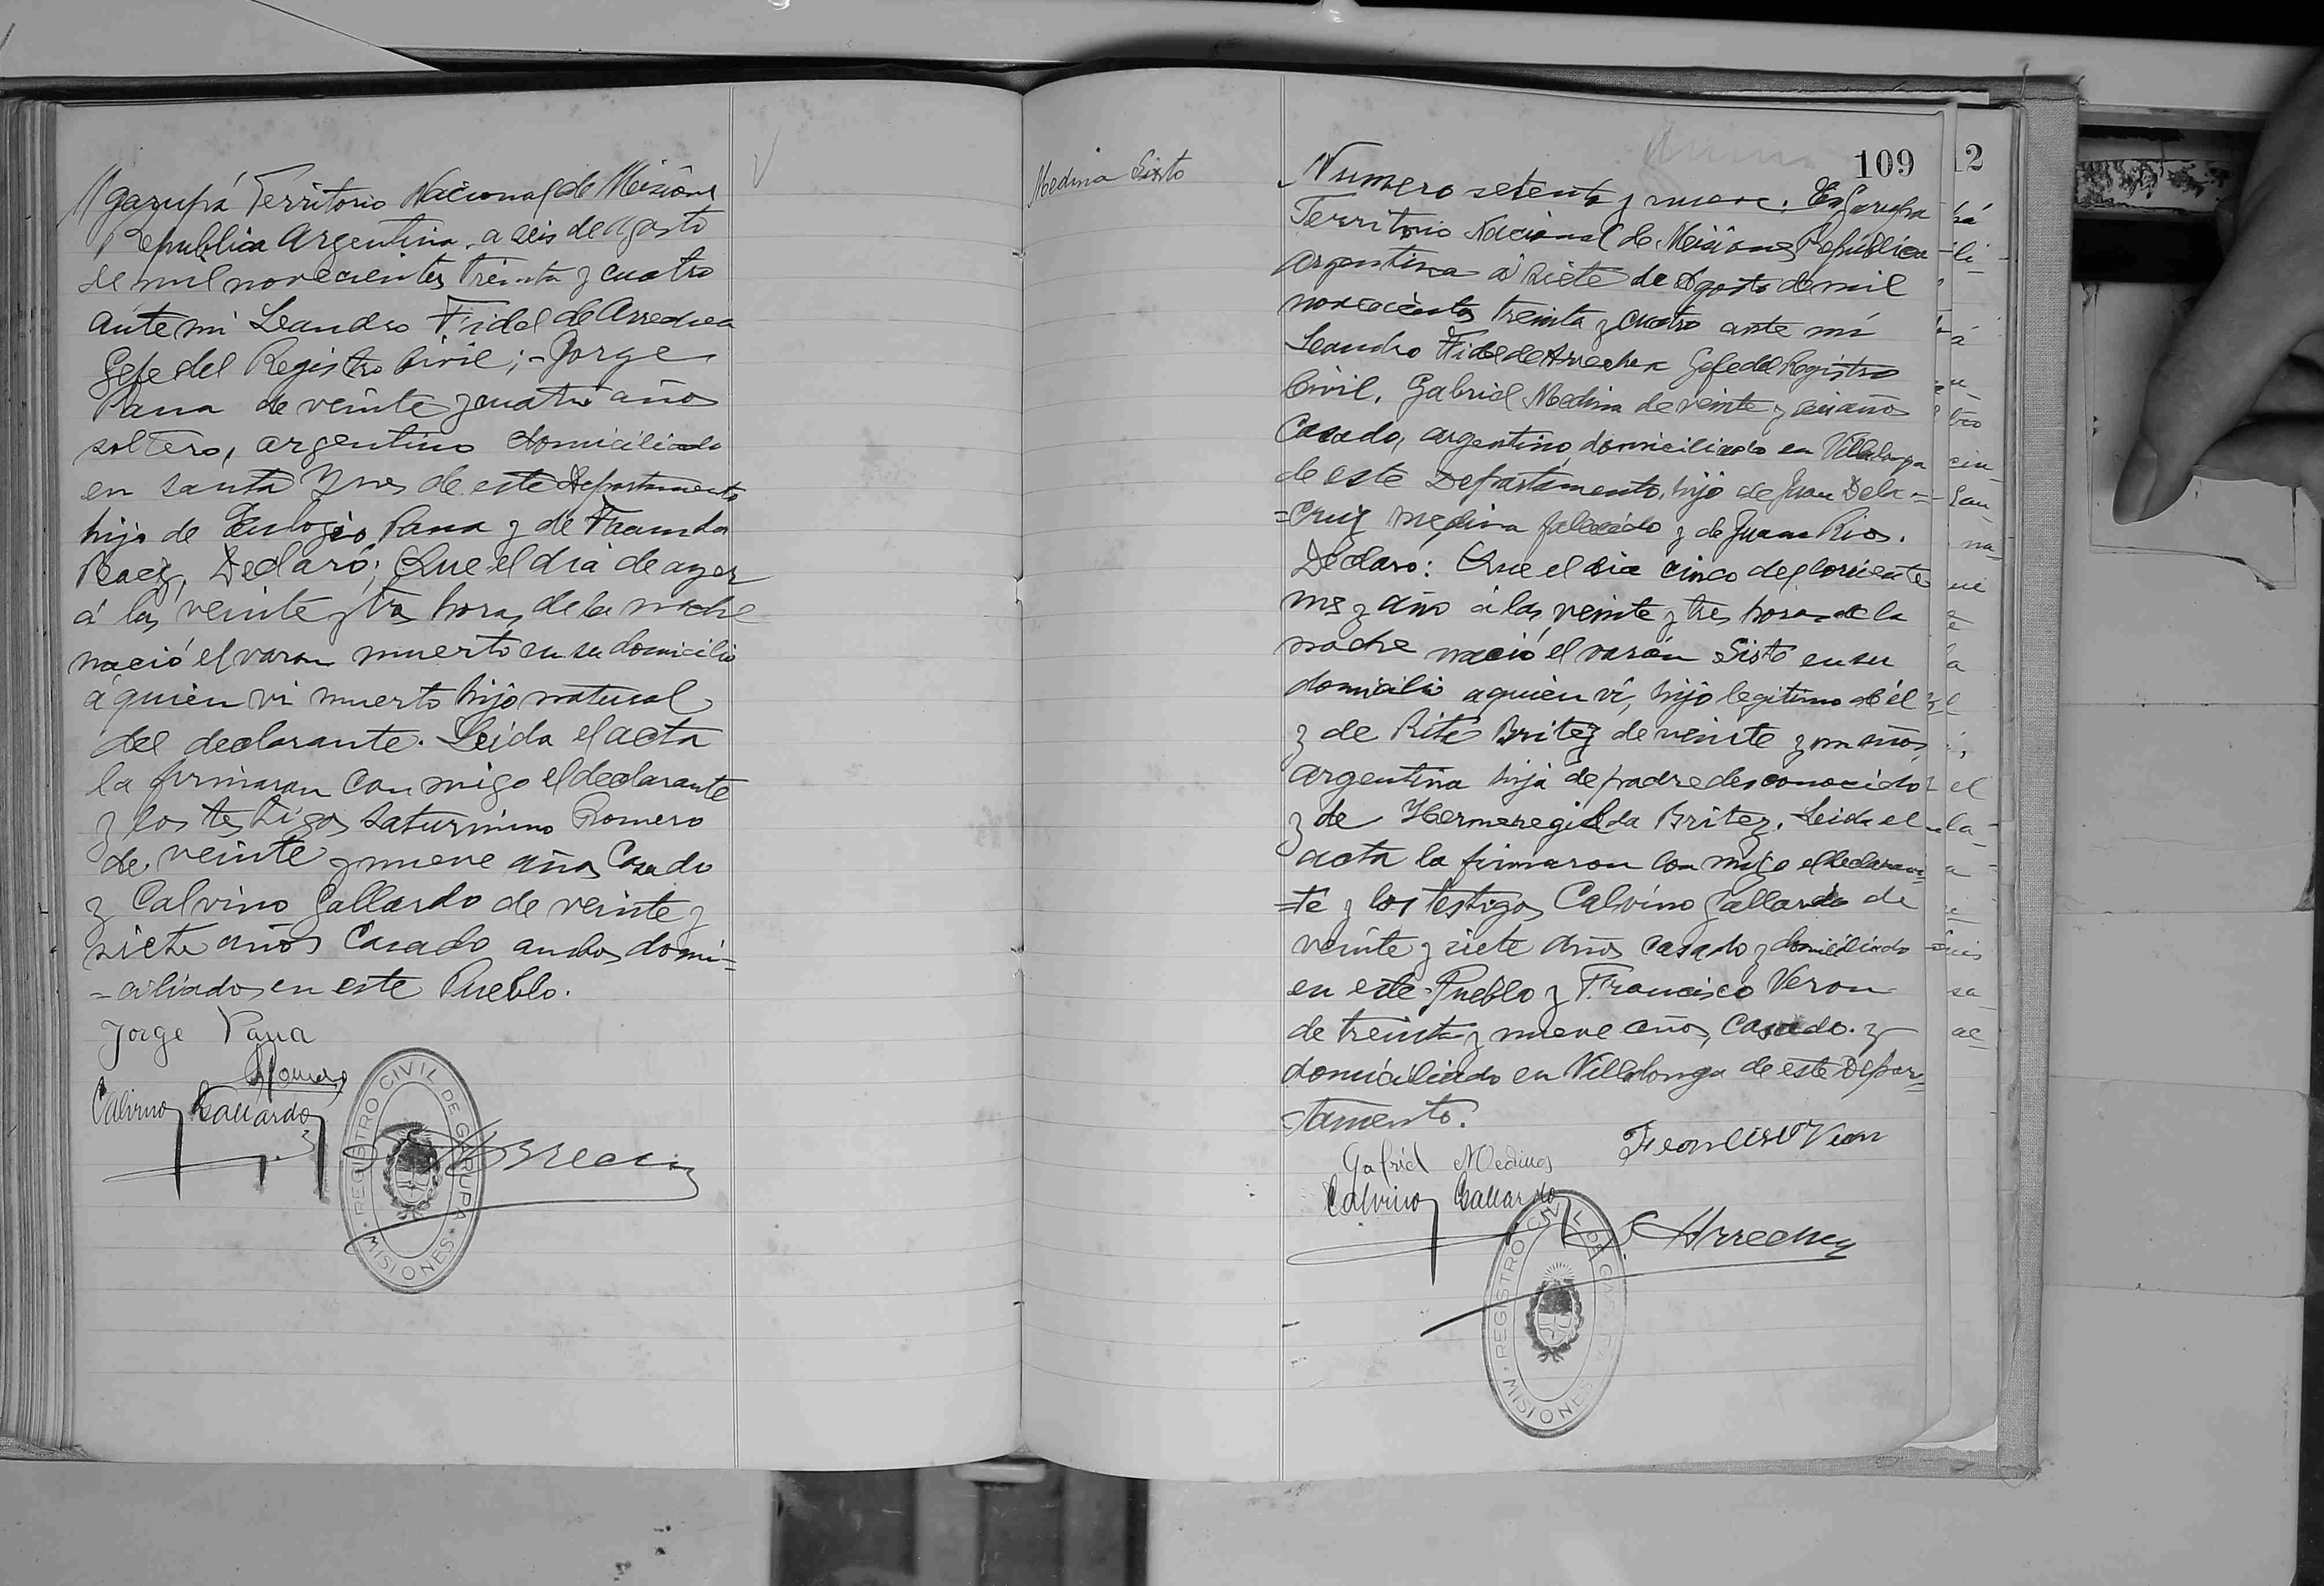 garupá Territorio Nacional de Misiones
República Argentina, a seis de Agosto
de mil novecientos treinta y cuatro
ante mi Leandro Fidel de Arrechea
Gefe del Registro Civil; Jorge
de veinte y cuatro años
soltero, argentino domiciliado
en Santa Ynes de este Departamento
hijo de Eulogio y de
Declaró; Que el dia de ayer
á las veinte y tres horas de la noche
nació el varon muerto en su domicilio
a quien vi muerto hijo natural
del declarante. Leida el acta
la firmaron con migo el declarante
y los testigos Saturnino Romero
de veinte y nueve años Casado
y Calvino Gallardo de veinte y
siete años Casado ambos domi=
=ciliados en este Pueblo.
Jorge
Romero
Calvino Gallardo
REGISTRO CIVIL DE GARUPA
MISIONES
Medina Sixto
109
12
Numero setenta y nueve. En Garupa
Territorio Nacional de Misiones República
Argentina á siete de Agosto de mil
novecientos treinta y cuatro ante mi
Leandro Fidel de Arrechea Gefe del Registro
Civil, Gabriel Medina de veinte y seis años
Casado, argentino domiciliado en Villalonga
de este Departamento, hijo de Juan Dela=
=Cruz Medina fallecido y de Juana Rios.
Declaró: Que el dia cinco del corriente
mes y año á las veinte y tres horas de la
noche nació el varón Sisto en su
domicilio a quien vi, hijo legitimo de él
y de Rita Britez de veinte y un años
argentina hija de padre desconocido
y de Hermeregilda Britez. Leida el
acta la firmaron con migo el declaran=
=te y los testigos Calvino Gallardo de
veinte y siete años casado y domiciliado
en este Pueblo y Francisco Veron
de treinta y nueve años, Casado y
domiciliado en Villalonga de este Depar=
=tamento.
Francisco Veron
Gabriel Medina
Calvino Gallardo
Arrechea
REGISTRO CIVIL DE GARUPA
MISIONES